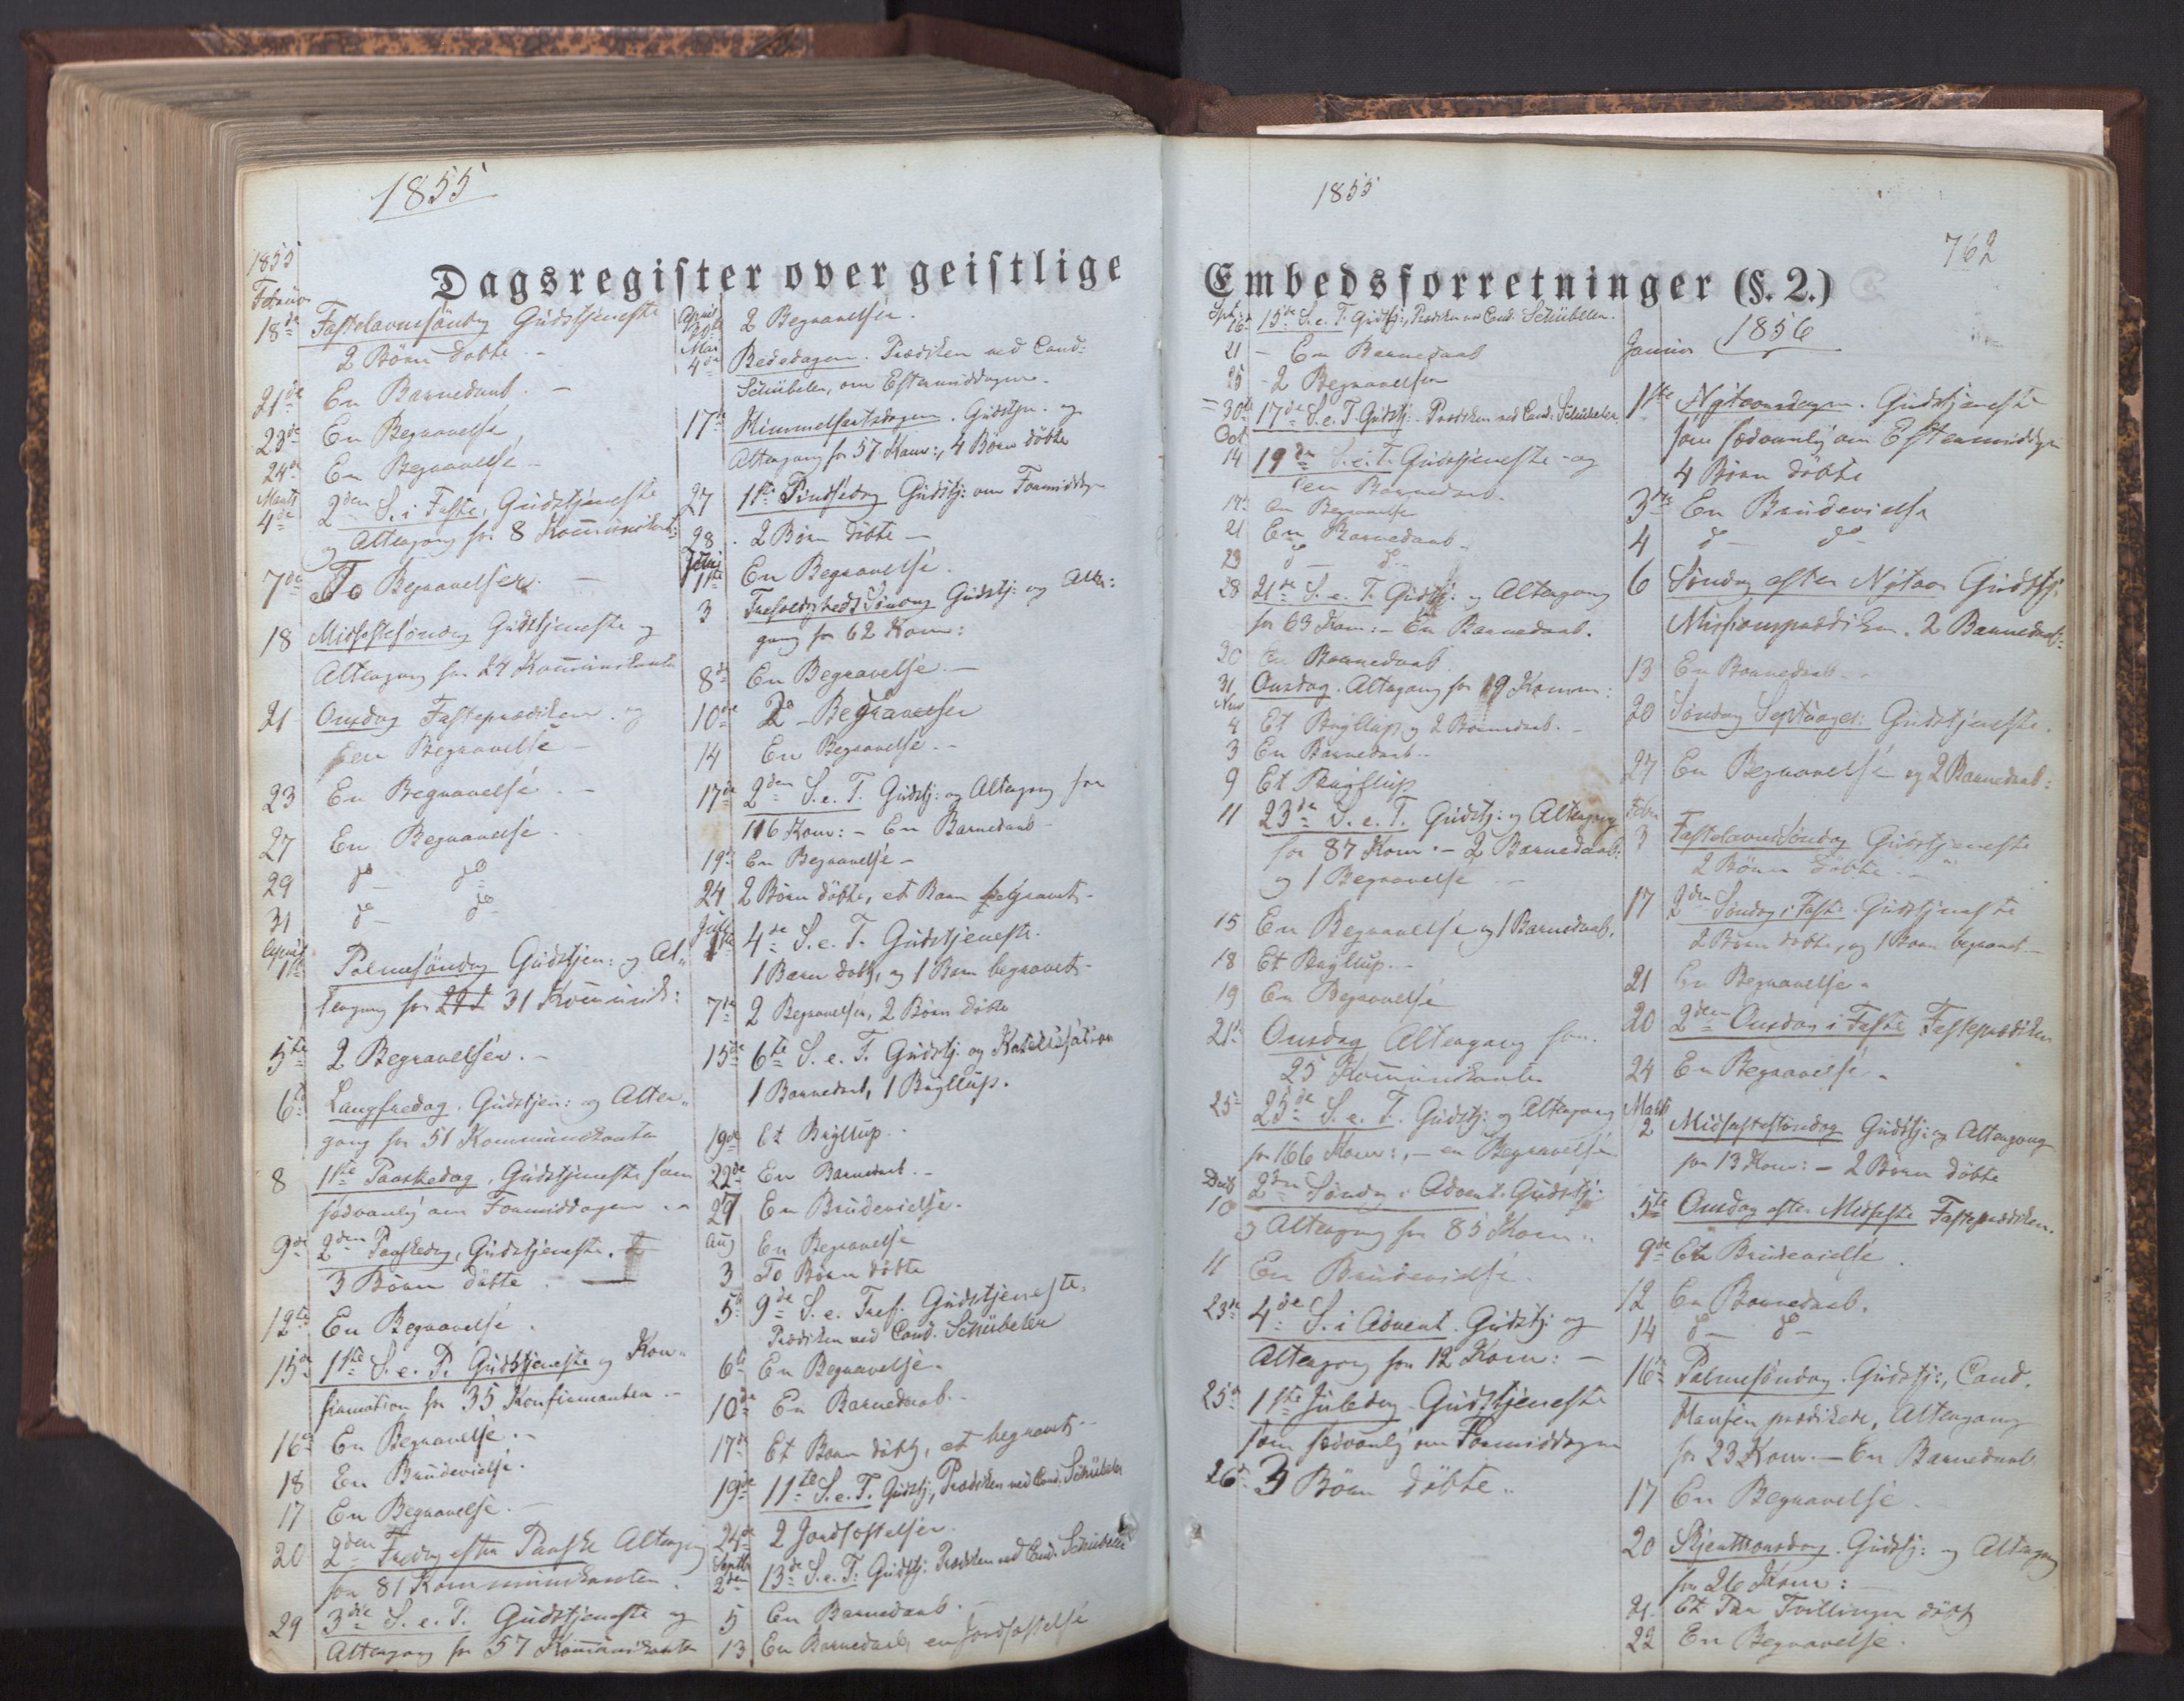 1855
Dagsregister over geistlige
1855
Februar
18de Fastelavnssöndag Gudstjeneste
2 Börn döbte. -
21de En Barnedaab. -
23de En Begravelse
24de En Begravelse -
Marts
4de 2den S. i Faste, Gudstjeneste
og Altergang for 8 Kommunikant:
7de To Begravelser. -
18 Midfastesöndag Gudstjeneste og
Altergang for 24 Kommunikanter
21 Onsdag Fasteprædiken og
en Begravelse -
23 En Begravelse. -
27 En Begravelse.
29 do do
31 do do
April
1ste Palmesöndag Gudstjen: og Al„
tergang for 31 Kommunik:
5te 2 Begravelser. -
6te Langfredag. Gudstjen: og Alter„
gang for 51 Kommunikanter
8 1ste Paaskedag, Gudstjeneste som
sædvanlig om Formiddagen. -
9de 2den Paaskedag, Gudstjeneste.
3 Börn döbte
12te En Begravelse.
15de 1ste S. e. P. Gudstjeneste og Kon„
firmation for 35 Konfirmanter. -
16de En Begravelse. -
18 En Brudevielse.
17 En Begravelse. -
20 2den Fredag efter Paaske Altergang
for 81 Kommunikanter.
29 3die S. e. P. Gudstjeneste og
Altergang for 57 Kommunikanter
April
30te 2 Begravelser.
Mai
4de Bededagen. Prædiken ved Cand:
Schübeler, om Eftermiddagen.
17de Himmelfartsdagen. Gudstjen. og
Altergang for 57 Kom:, 4 Börn döbte
27 1ste Pindsedag Gudstj: om Formiddagen
28 2 Börn döbte -
Juni
1ste En Begravelse.
3 Trefoldighedssöndag Gudstj: og Alter:
gang for 62 Kom:
8de En Begravelse. -
10de 2 Begravelser
14 En Begravelse. -
17de 2den S. e. T. Gudstj: og Altergang for
116 Kom: - En Barnedaab
19de En Begravelse -
24 2 Börn döbte, et Barn begravet -
Juli
1ste 4de S. e. T. Gudstjeneste.
1 Barn döbt, og 1 Barn begravet -
7de 2 Begravelser, 2 Börn döbte
15de 6te S. e. T. Gudstj: og Katekisation
1 Barnedaab, 1 Bryllup.
19de Et Bryllup. -
22de En Barnedaab. -
29 En Brudevielse.
Aug En Begravelse
3 To Börn döbte
5te 9de S. e. Tref. Gudstjeneste.
Prædiken ved Cand. Schübeler
6te En Begravelse.
10de En Barnedaab. -
17de Et Barn döbt, et begravet -
19de 11te S. e. T. Gudstj:, Prædiken ved Cand. Schübeler
24de 2 Jordfæstelser.
Septb
2den 13de S. e. T. Gudstj: Prædiken ved Cand. Schübeler
5 En Barnedaab. -
13 En Barnedaab, en Jordfæstelse
1855
762
Embedsforretninger (§. 2.)
Spt.
16de 15de S. e. T. Gudstj:, Prædiken ved Cand. Schübeler.
21 - En Barnedaab
25 - 2 Begravelser
- 30te 17de S. e. T. Gudstj: Prædiken ved Cand: Schübeler.
Oct
14 19de S. e. T. Gudstjeneste - og
en Barnedaab.
17 En Begravelse
21 En Barnedaab -
23 do - do -
28 21de S. e. T. Gudstj: og Altergang
for 63 Kom: - En Barnedaab.
30 En Barnedaab
31 Onsdag. Altergang for 19 Komm:
Novr
4 Et Bryllup og 2 Barnedaab. -
3 En Barnedaab -
9 Et Bryllup
11 23de S. e. T. Gudstj: og Altergang
for 87 Kom. - 2 Barnedaab:
og 1 Begravelse -
15 En Begravelse og 1 Barnedaab.
18 Et Bryllup. -
19 En Begravelse
21de Onsdag Altergang for
25 Kommunikanter
25 25de S. e. T. Gudstj: og Altergang
for 166 Kom:, - en Begravelse
Decb
10 2den Söndag i Advent. Gudstj:
og Altergang for 85 Kom„
11 En Brudevielse.
23de 4de S. i Advent. Gudstj: og
Altergang for 12 Kom: -
25de 1ste Juledag - Gudstjeneste
som sædvanlig om Formiddagen
26de 3 Börn döbte.
1856
Januar
1ste Nytaarsdagen. Gudstjeneste
som sædvanlig om Eftermiddagen
4 Börn döbte
3die En Brudevielse
4 do - do
6 Söndag efter Nytaar Gudstj:
Missionsprædiken. 2 Barnedaab
13 En Barnedaab -
20 Söndag Septuages: Gudstjeneste.
27 En Begravelse og 2 Barnedaab:
Febr
3 Fastelavnssöndag Gudstjeneste
2 Börn döbte. -
17 2den Söndag i Faste. Gudstjeneste
2 Börn döbte, og 1 Barn begravet -
21 En Begravelse.
20 2den Onsdag i Faste Fasteprædiken
24 En Begravelse. -
Marts
2 Midfastesöndag Gudstj: og Altergang
for 13 Kom: - 2 Börn döbte
5te Onsdag efter Midfaste Fasteprædiken.
9de En Brudevielse.
12 En Barnedaab.
14 do - do -
16de Palmesöndag. Gudstj:, Cand.
Hansen prædikede, Altergang
for 23 Kom. - En Barnedaab
17 En Begravelse. -
20 Skjærthorsdag. Gudstj: og Altergang
for 26 Kom: -
21. Et Par Tvillinger döbt
22 En Begravelse.